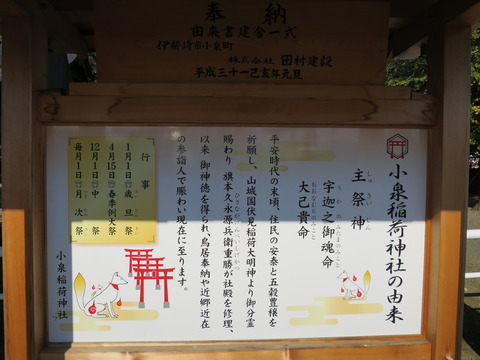 奉納
由来書建舎一式
伊勢崎市小泉町
株式会社 田村建設
平成三十一己亥年元旦
小泉稲荷神社の由来
主祭神
しゅさいじん
宇迦之御魂命
うかのみたまのみこと
大己貴命
おおなむちのみこと
平安時代の末頃、住民の安泰と五穀豊穣を
祈願し、山城国伏見稲荷大明神より御分霊を
賜わり 旗本久永源兵衛重勝が社殿を修理、
以来 御神徳を得られ、鳥居奉納や近郷近在
の参詣人で賑わい現在に至ります。
行事
1月1日 歳旦祭
4月15日 春季例大祭
12月1日 中祭
毎月1日 月次祭
小泉稲荷神社